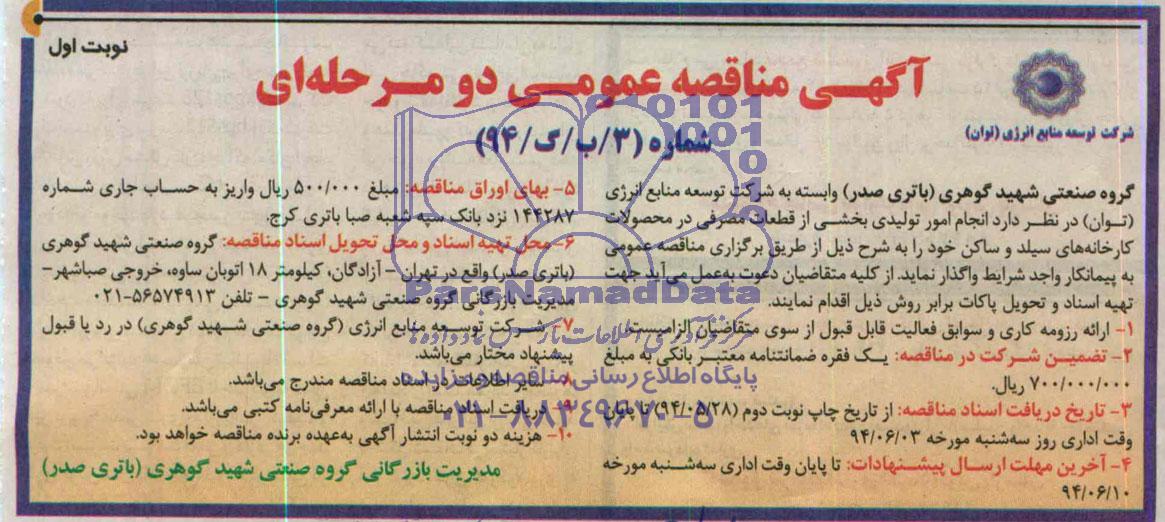 نوبت اول
آگهی مناقصه عمومی دو مرحله‌ای
شماره (۳/ب/ک/۹۴)
شرکت توسعه منابع انرژی (توان)
گروه صنعتی شهید گوهری (باتری صدر) وابسته به شرکت توسعه منابع انرژی
(توان) در نظر دارد انجام امور تولیدی بخشی از قطعات مصرفی در محصولات
کارخانه‌های سیلد و ساکن خود را به شرح ذیل از طریق برگزاری مناقصه عمومی
به پیمانکار واجد شرایط واگذار نماید. از کلیه متقاضیان دعوت به‌عمل می‌آید جهت
تهیه اسناد و تحویل پاکات برابر روش ذیل اقدام نمایند.
۱- ارائه رزومه کاری و سوابق فعالیت قابل قبول از سوی متقاضیان الزامیست.
۲- تضمین شرکت در مناقصه: یک فقره ضمانتنامه معتبر بانکی به مبلغ
۷۰۰/۰۰۰/۰۰۰ ریال.
۳- تاریخ دریافت اسناد مناقصه: از تاریخ چاپ نوبت دوم (۹۴/۰۵/۲۸) تا پایان
وقت اداری روز سه‌شنبه مورخه ۹۴/۰۶/۰۳
۴- آخرین مهلت ارسال پیشنهادات: تا پایان وقت اداری سه‌شنبه مورخه
۹۴/۰۶/۱۰
۵- بهای اوراق مناقصه: مبلغ ۵۰۰/۰۰۰ ریال واریز به حساب جاری شماره
۱۴۴۲۸۷ نزد بانک سپه شعبه صبا باتری کرج.
۶- محل تهیه اسناد و محل تحویل اسناد مناقصه: گروه صنعتی شهید گوهری
(باتری صدر) واقع در تهران - آزادگان، کیلومتر ۱۸ اتوبان ساوه، خروجی صباشهر-
مدیریت بازرگانی گروه صنعتی شهید گوهری - تلفن ۵۶۵۷۴۹۱۳-۰۲۱
۷- شرکت توسعه منابع انرژی (گروه صنعتی شهید گوهری) در رد یا قبول
پیشنهاد مختار می‌باشد.
۸- سایر اطلاعات در اسناد مناقصه مندرج می‌باشد.
۹- دریافت اسناد مناقصه با ارائه معرفی‌نامه کتبی می‌باشد.
۱۰- هزینه دو نوبت انتشار آگهی به‌عهده برنده مناقصه خواهد بود.
مدیریت بازرگانی گروه صنعتی شهید گوهری (باتری صدر)
ParsNamadData
مرکز فرآوری اطلاعات پارس نماد داده ها
پایگاه اطلاع رسانی مناقصه و مزایده
۰۲۱-۸۸۳۴۹۶۷۰-۵